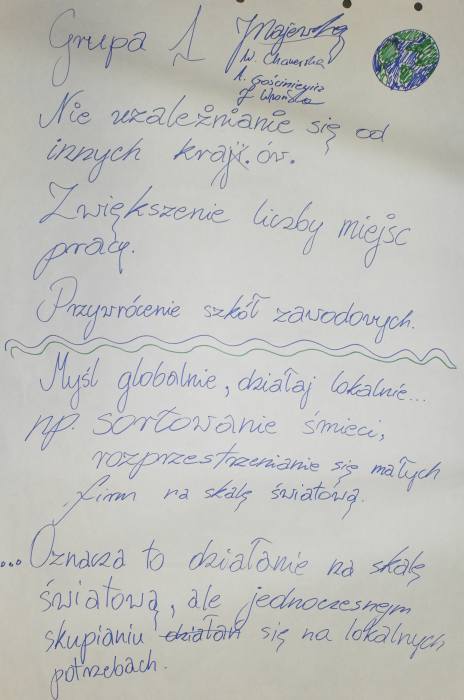 Grupa 1
Majewska
W. Chawerska
A. Gościniewicz
J.
Nie uzależnianie się od
innych kraji.ów.
Zwiększenie liczby miejsc
pracy.
Przywrócenie szkół zawodowych.
Myśl globalnie, działaj lokalnie...
np. sortowanie śmieci,
rozprzestrzenianie się małych
firm na skalę światową.
...Oznacza to działanie na skalę
światową, ale jednoczesnym
skupianiu działań się na lokalnych
potrzebach.